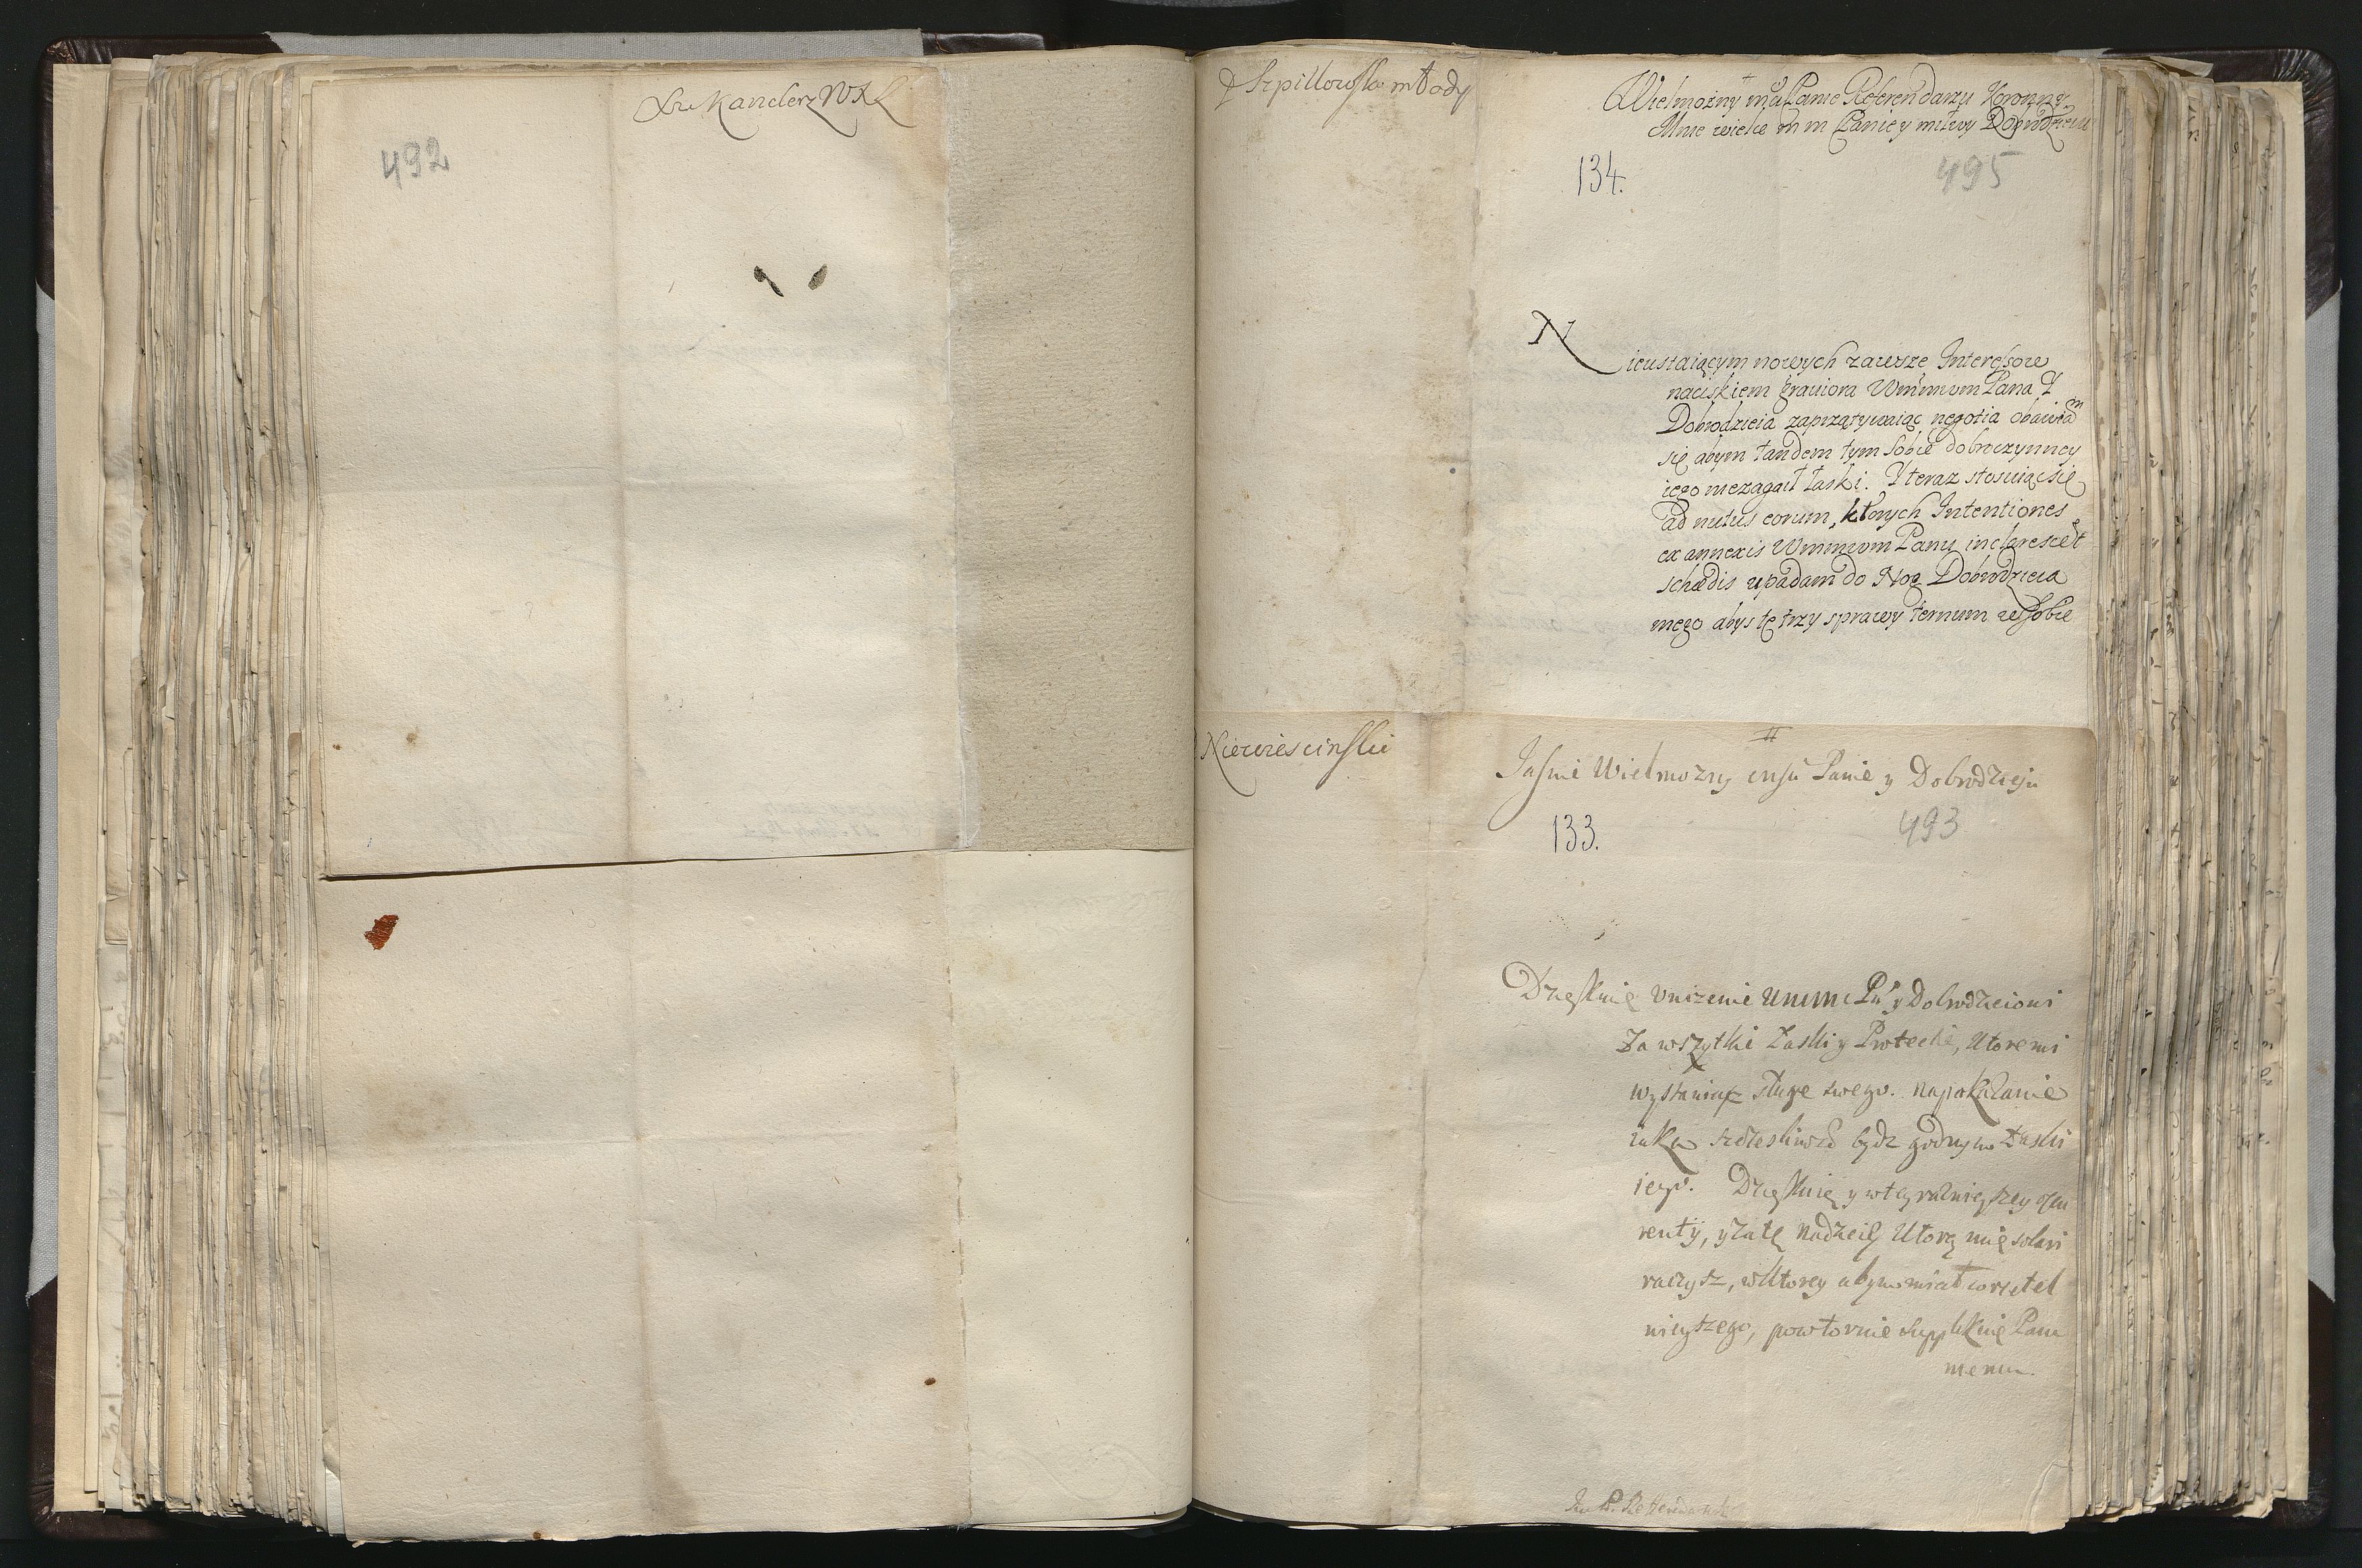 Kanclerz WXL
492
Szpillowski młody
Wielmożny mci Panie Referendarzu Koronny
Mnie wielce m m Panie y miłwy Dobrodzieiu
134.
495
Nieustaiącym nowych zawsze Interessow
naciskiem graviora Wmmwm Pana y
Dobrodzieia zaprzątywaiąc negotia obawiam
się abym tandem tym sobie dobroczynney
iego niezagaił łaski. Y teraz stosuiąc się
ad nutus eorum, ktorych Intentiones
ex annexis Wmmwm Panu inclarescet
schedis upadam do Nog Dobrodzieia
mego abys te trzy sprawy ternum w sobie
Niewiescinski
Jasnie Wielmozny Panie y Dobrodzieju
133.
493
Dziękuię unizenie y Dobrodzieiowi
Za wszytkie Łaski y Protectie, ktoremi
sługe swego. na pokazanie
iako szczesliwsze bydz godnym Łaski
iego. Dziękuię y w teyraznieyszey
renty, y za tę nadzieię ktorą mię
raczysz, w ktorey abym miał
nieyszego, powtornie supplikuię Panu
memu.